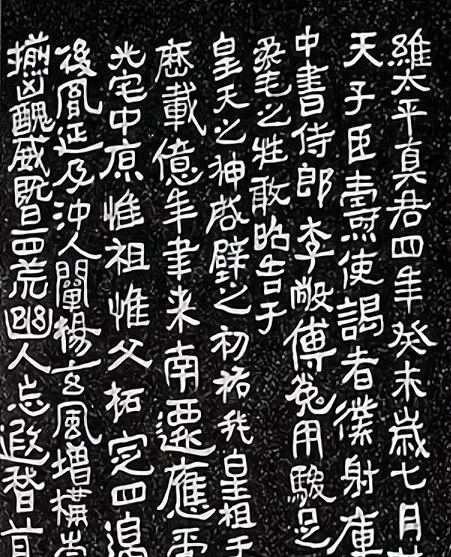 維太平真君四年癸未歲七月
天子臣燾使謁者僕射庫
中書侍郎李敞傅㝹用駿足
柔毛之牲敢昭告于
皇天之神啟辟之初祐我皇祖于
歷載億年聿来南遷應
光宅中原惟祖惟父拓定四邊
後胤延及沖人闡揚玄風增構崇
揃凶醜威暨四荒幽人忘遐稽首